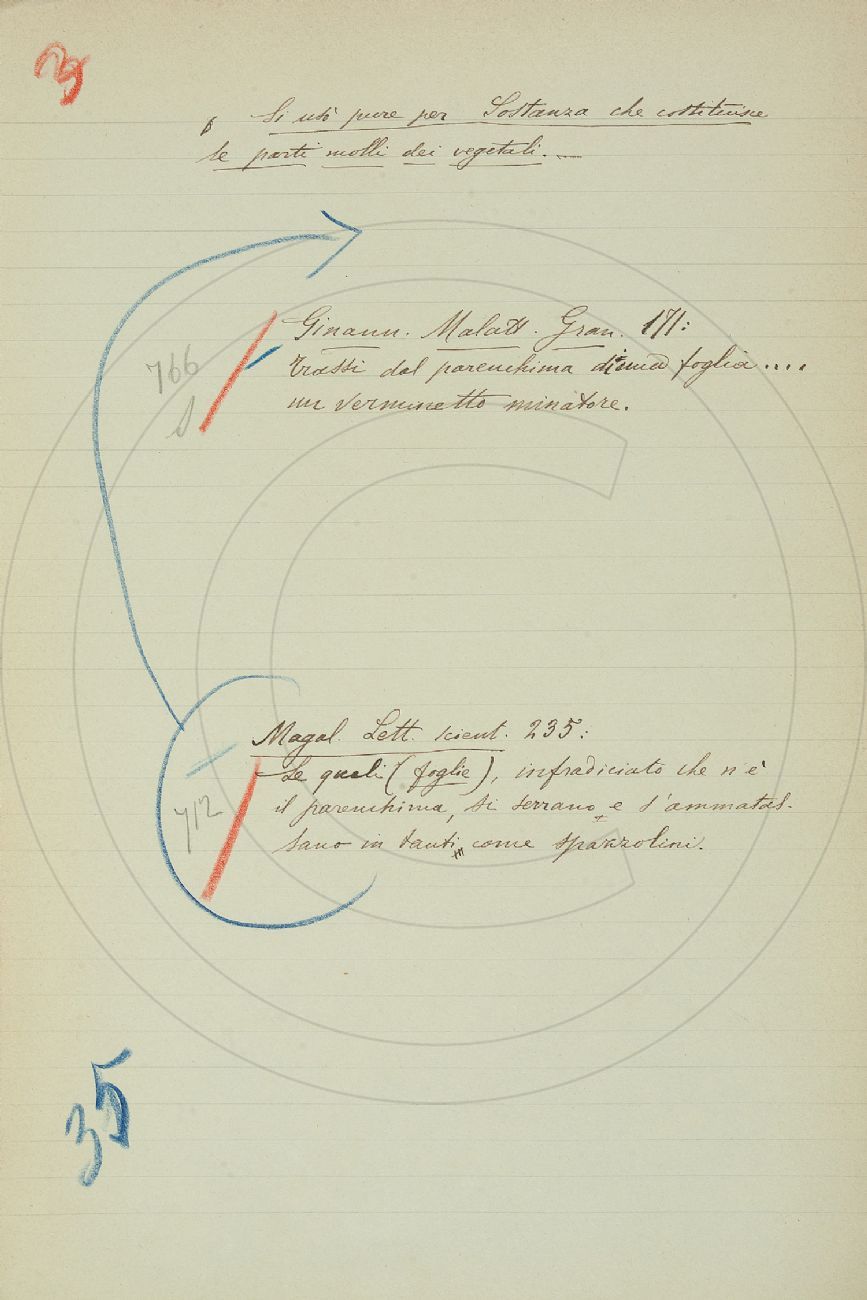 Si usò pure per Sostanza che costituisce
le parti molli dei vegetali. —
Ginann. Malatt. Gran. 171:
766
Trassi dal parenchima d'una foglia....
un verminetto minatore.
Magal. Lett. scient. 235:
Le quali (foglie), infradiciato che n'è
712
il parenchima, si serrano e s'ammatas-
sano in tanti come spazzolini.
35